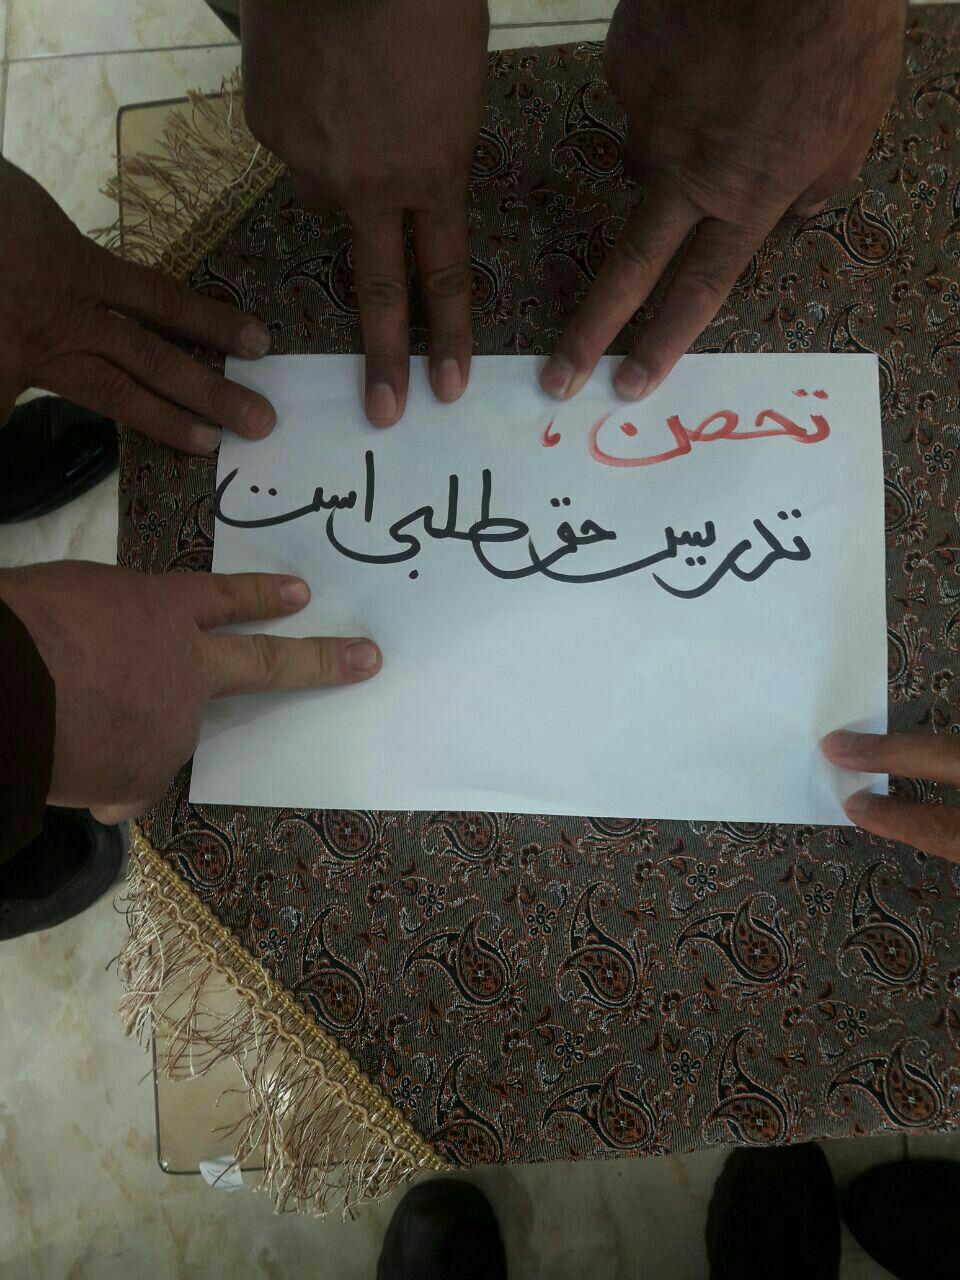 تحصن ،
تدریس حق طلبی است